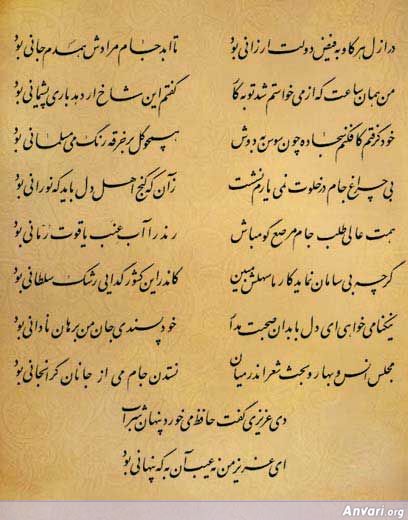 در ازل هر کاو به فیض دولت ارزانی بود تا ابد جام مرادش همدم جانی بود
من همان ساعت که از می خواستم شد توبه کار گفتم این شاخ ار دهد باری پشیمانی بود
خود گرفتم کافکنم سجاده چون سوسن به دوش همچو گل بر خرقه رنگ می مسلمانی بود
بی چراغ جام در خلوت نمی یارم نشست زآن که کنج اهل دل باید که نورانی بود
همت عالی طلب جام مرصع گو مباش رند را آب عنب یاقوت رمانی بود
گرچه بی سامان نماید کار ما سهلش مبین کاندر این کشور گدایی رشک سلطانی بود
نیکنامی خواهی ای دل با بدان صحبت مدار خود پسندی جان من برهان نادانی بود
مجلس انس و بهار و بحث شعر اندر میان نستدن جام می از جانان گرانجانی بود
دی عزیزی گفت حافظ می خورد پنهان شراب
ای عزیز من نه عیب آن به که پنهانی بود
Anvari.org